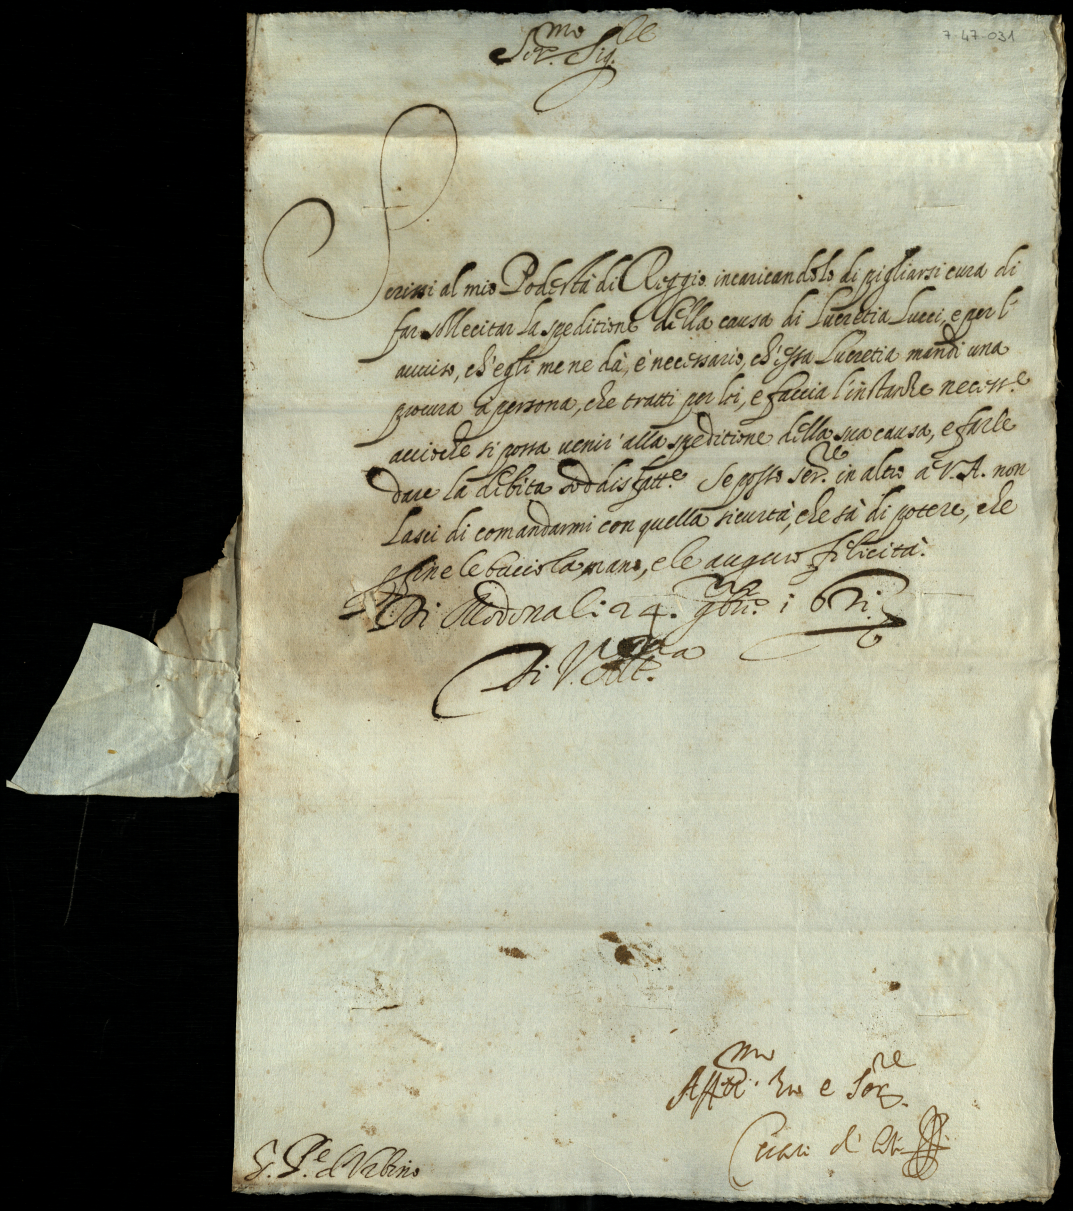 7-47-031
Ser.mo Sig.re
Scrissi al mio Podestà di Reggio incaricandolo di pigliarsi cura di
far sollecitar la speditione della causa di Lucretia Lucci, e per l'
avviso, ch'egli me ne dà, è necessario, ch'essa Lucretia mandi una
procura à persona, che tratti per lei, e faccia l'instanze necess.e
acciochè si possa venir' alla speditione della sua causa, e farle
dare la debita soddisfatt.e Se posso ser.re in altro à V.A. non
lasci di comandarmi con quella sicurtà, che sà di potere, che
fine le baccio la mano, e le auguro felicità.
Di Modona li 24. 9bre.
Di V. Alt.za
Aff.mo e Ser.re
Cesare d'Este
S. P.e d'Urbino